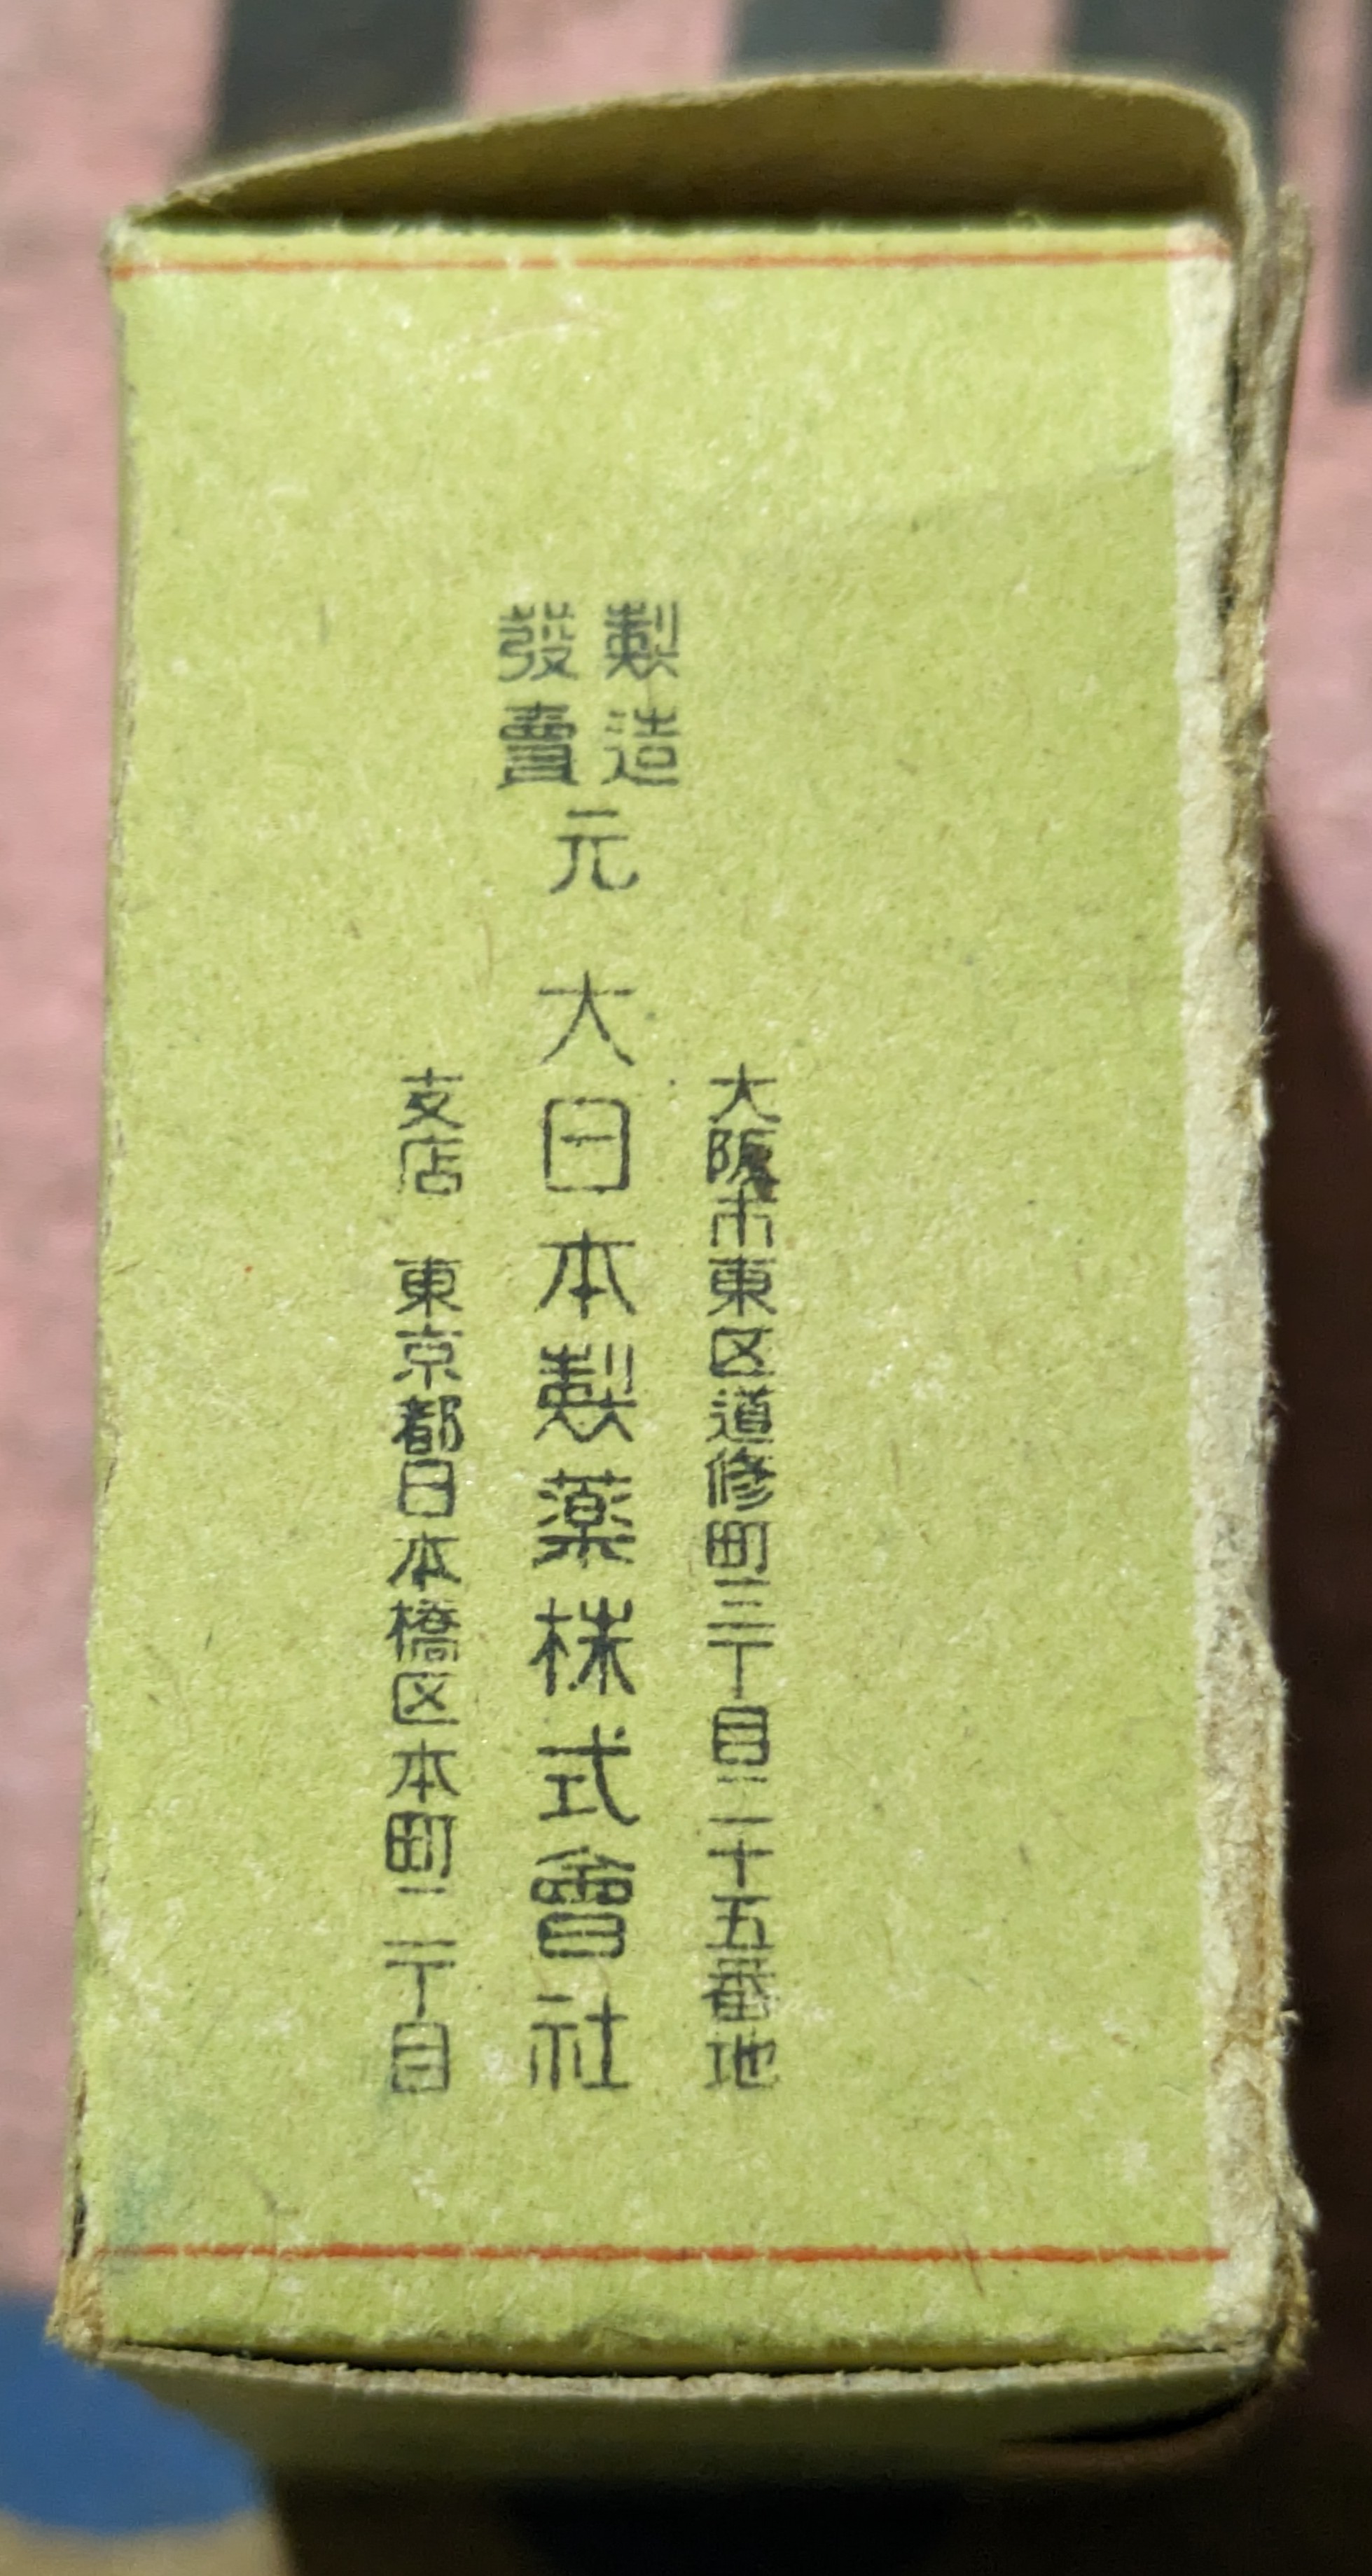 大阪市東区道修町三丁目二十五番地
製造
發賣
元 大日本製薬株式會社
支店 東京都日本橋区本町二丁目